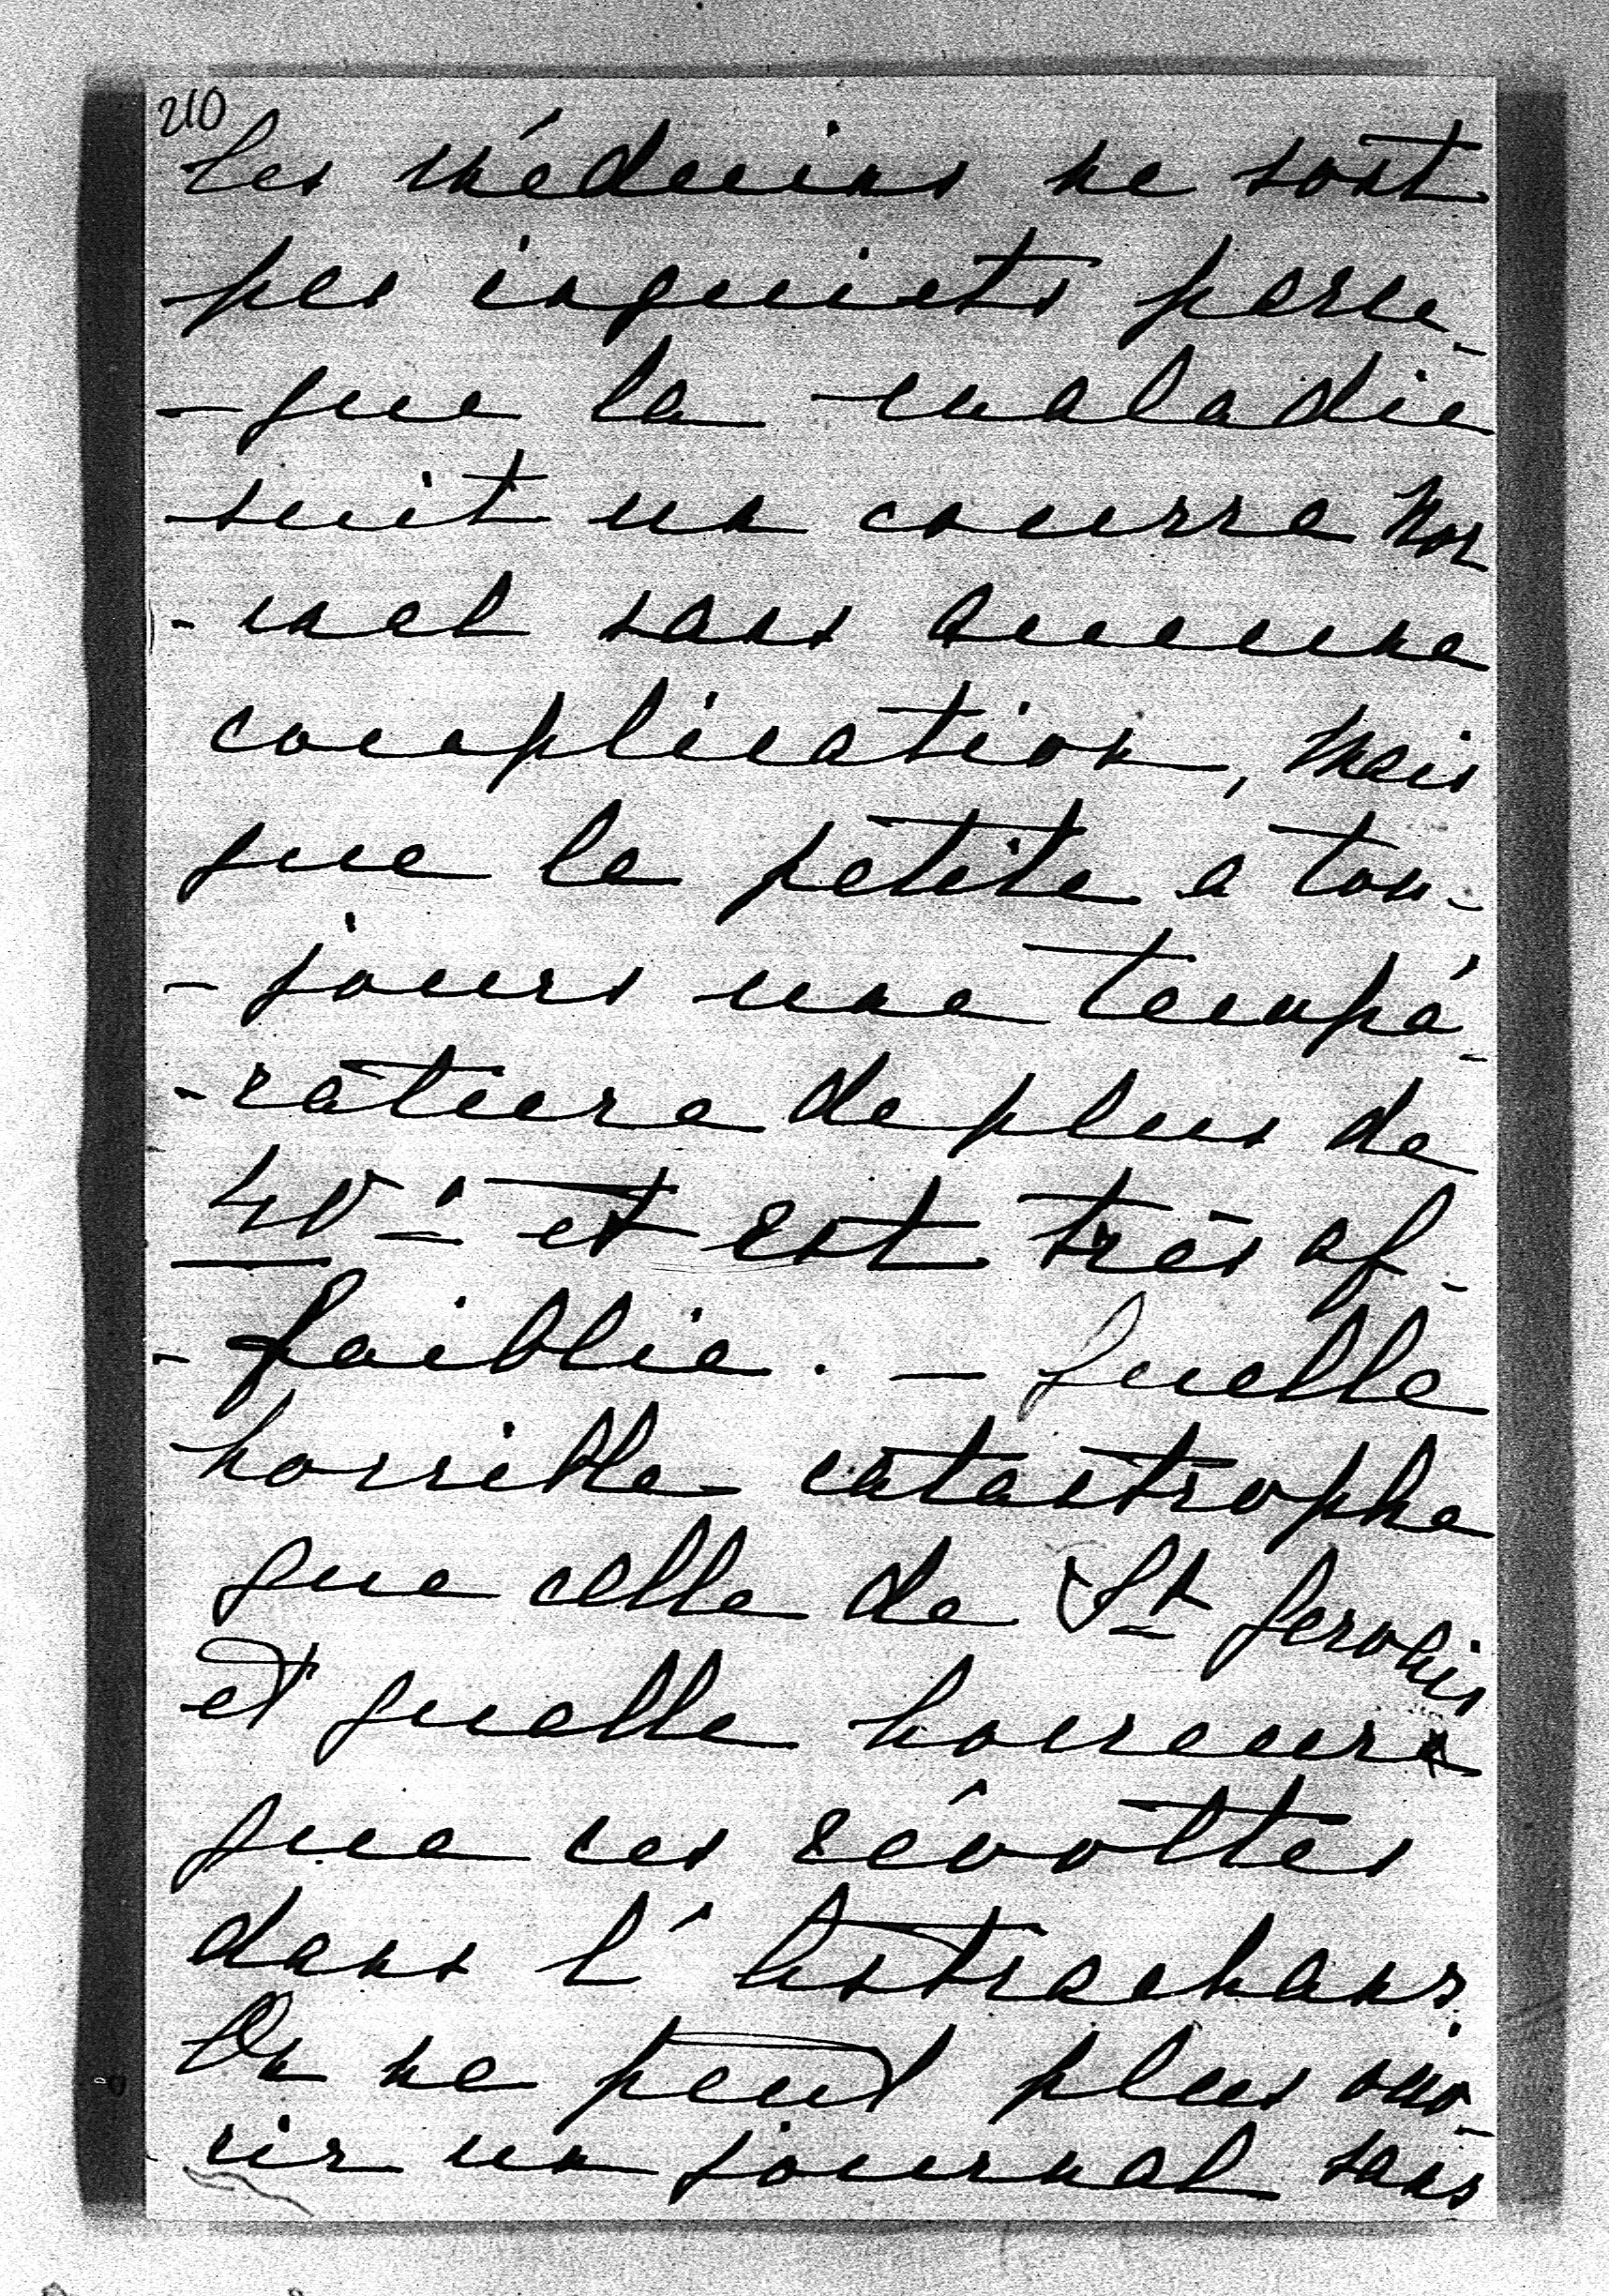 210
Les médecins ne sont
pas inquiets parce-
-que la maladie
suit un course nor
-mal sans aucune
complication, mais
que la petite a tou-
-jours une tempé-
-rature de plus de
40° - et est très af-
-faiblie. — Quelle
horrible catastrophe
que celle de St Gervais
et quelle horreur
que ces révoltes
dans l'Astrachans.
On ne peut plus ouv-
rir un journal sans